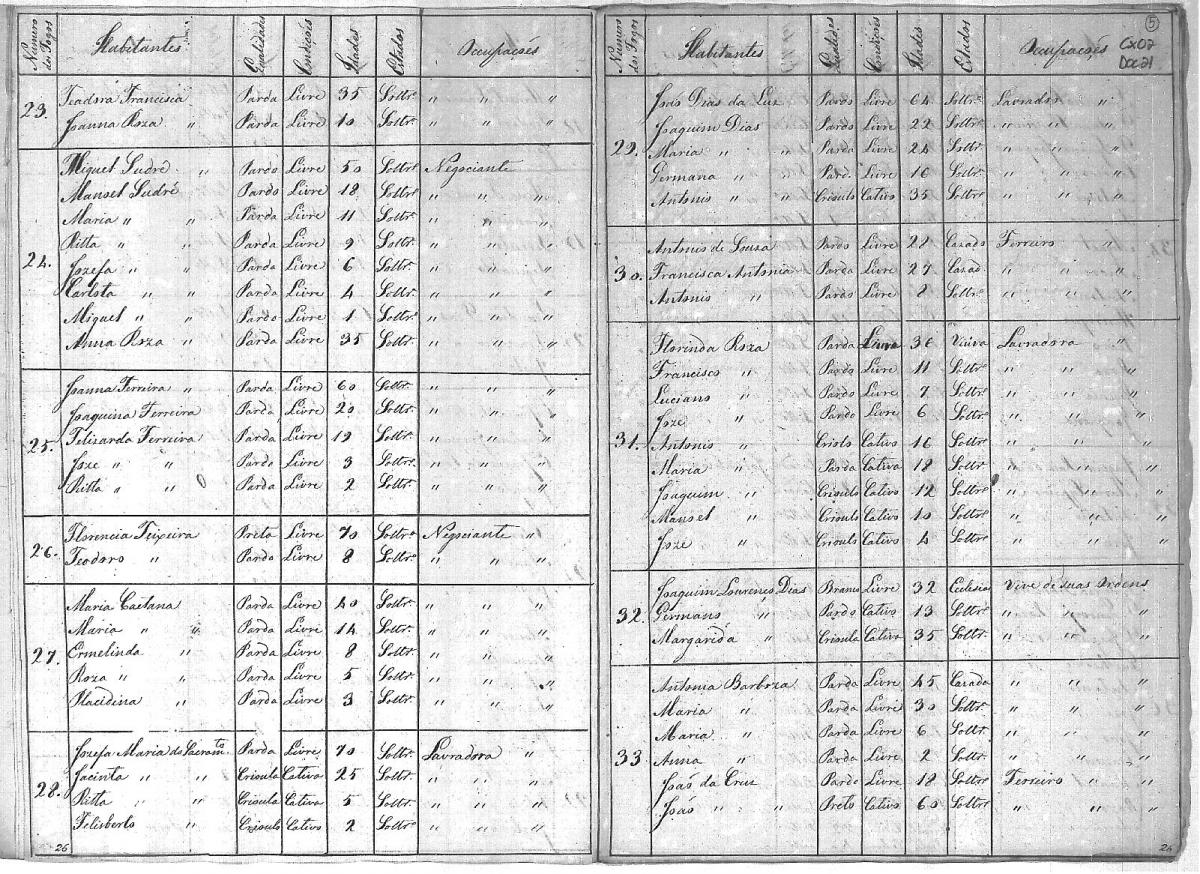 Número dos Fogos Habitantes Qualidades Condições Idades Estados Occupações
23. Teadora Francisca Parda Livre 35 Soltr.ª " " "
Joanna Roza " Parda Livre 10 Soltr.ª " " "
24. Miguel Sudré " Pardo Livre 50 Soltr.º Negociante
Manoel Sudré Pardo Livre 18 Soltr.º " " "
Maria " " Parda Livre 11 Soltr.ª " " "
Ritta " " Parda Livre 9 Soltr.ª " " "
Jozefa " " Parda Livre 6 Soltr.ª " " "
Carlota " " Parda Livre 4 Soltr.ª " " "
Miguel " " Pardo Livre 1 Soltr.º " " "
Anna Roza " Parda Livre 35 Soltr.ª " " "
25. Joanna Ferreira " Parda Livre 60 Soltr.ª " " "
Joaquina Ferreira Parda Livre 20 Soltr.ª " " "
Felizarda Ferreira Parda Livre 19 Soltr.ª " " "
Joze " " Pardo Livre 3 Soltr.º " " "
Ritta " " Parda Livre 2 Soltr.ª " " "
26. Florencia Teixeira Preta Livre 70 Soltr.ª Negociante "
Teodoro " Pardo Livre 8 Soltr.º " " "
27. Maria Caetana Parda Livre 40 Soltr.ª " " "
Maria " " Parda Livre 14 Soltr.ª " " "
Ermelinda " Parda Livre 8 Soltr.ª " " "
Roza " " Parda Livre 5 Soltr.ª " " "
Placidina " Parda Livre 3 Soltr.ª " " "
28. Jozefa Maria do Sacram.to Parda Livre 70 Soltr.ª Lavradora "
Jacinta " " Crioula Cativa 25 Soltr.ª " " "
Ritta " " Crioula Cativa 5 Soltr.ª " " "
Felisberto " Crioulo Cativo 2 Soltr.º " " "
26
Número dos Fogos Habitantes Qualid.es Condições Idades Estados Occupações
5
Cx07
Doc21
29. João Dias da Luz Pardo Livre 64 Soltr.º Lavrador "
Joaquim Dias Pardo Livre 22 Soltr.º " " "
Maria " " Parda Livre 24 Soltr.ª " " "
Germana " Pard. Livre 16 Soltr.ª " " "
Antonio " " Crioulo Cativo 35 Soltr.º " " "
30. Antonio de Souza Pardo Livre 28 Cazado Ferreiro "
Francisca Antonia Parda Livre 27 Cazad. " " "
Antonio " Pardo Livre 8 Soltr.º " " "
31. Florinda Roza Parda Livre 36 Viuva Lavradora "
Francisco " Pardo Livre 11 Soltr.º " "
Luciano " Pardo Livre 7 Soltr.º " "
Joze " Pardo Livre 6 Soltr.º " "
Antonio " Criolo Cativo 16 Soltr.º " " "
Maria " Parda Cativa 18 Soltr.ª " " "
Joaquim " Crioulo Cativo 12 Soltr.º " " "
Manoel " Crioulo Cativo 10 Soltr.º " " "
Joze " Crioulo Cativo 4 Soltr.º " " "
32. Joaquim Lourenco Dias Branco Livre 32 Eclesias Vive de suas Ordens
Germano " Pardo Cativo 13 Soltr.º " " "
Margarida " Crioula Cativa 35 Soltr.ª " " "
33. Antonia Barboza Parda Livre 45 Cazada " " "
Maria " Parda Livre 30 Soltr.ª " " "
Maria " Parda Livre 6 Soltr.ª " " "
Anna " Parda Livre 2 Soltr.ª " " "
João da Cruz Pardo Livre 18 Soltr.º Ferreiro " "
João " " Preto Cativo 60 Soltr.º " " "
26